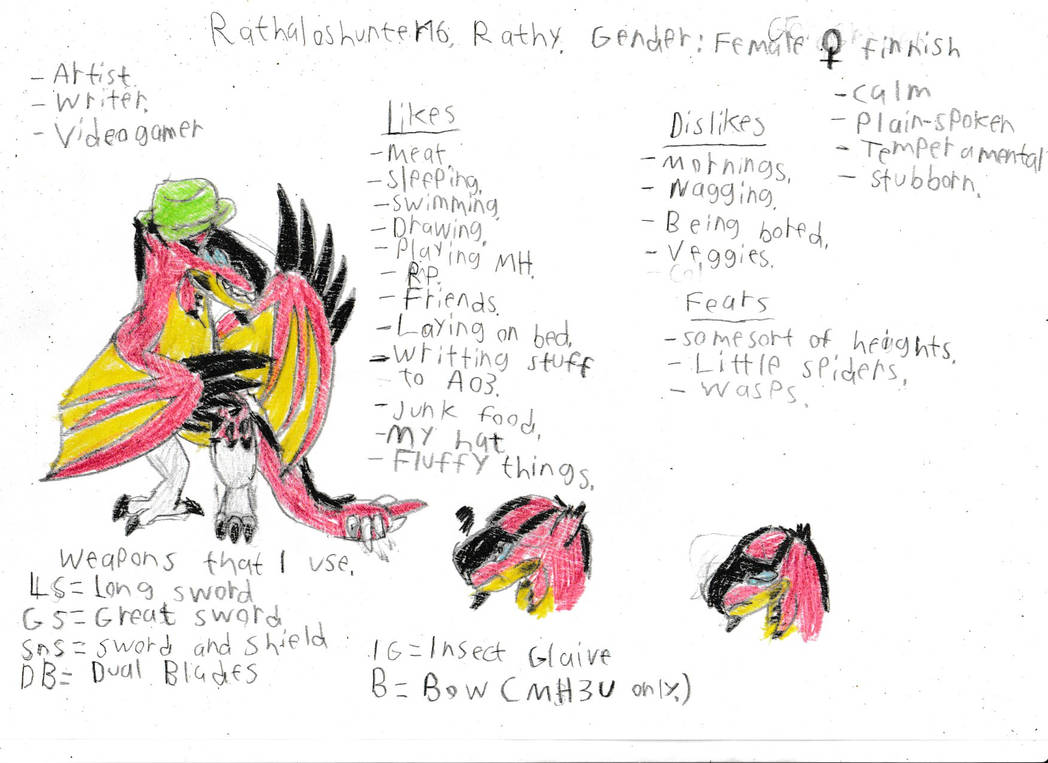 Rathaloshunter16, Rathy. Gender: Female ♀ Finnish
- Artist.
- Writer.
- Videogamer
Likes
- Meat.
- Sleeping.
- Swimming.
- Drawing.
- Playing MH.
- RP.
- Friends.
- Laying on bed.
- Writting stuff
to AO3.
- Junk food.
- My hat
- Fluffy things.
Dislikes
- Mornings.
- Nagging.
- Being bored.
- Veggies.
Fears
- Somesort of heights.
- Little spiders.
- Wasps.
- Calm
- Plain-spoken
- Temperamental
- Stubborn.
Weapons that I use.
LS = Long sword
GS = Great sword
SnS = Sword and Shield
DB = Dual Blades
IG = Insect Glaive
B = Bow (MH3U only.)